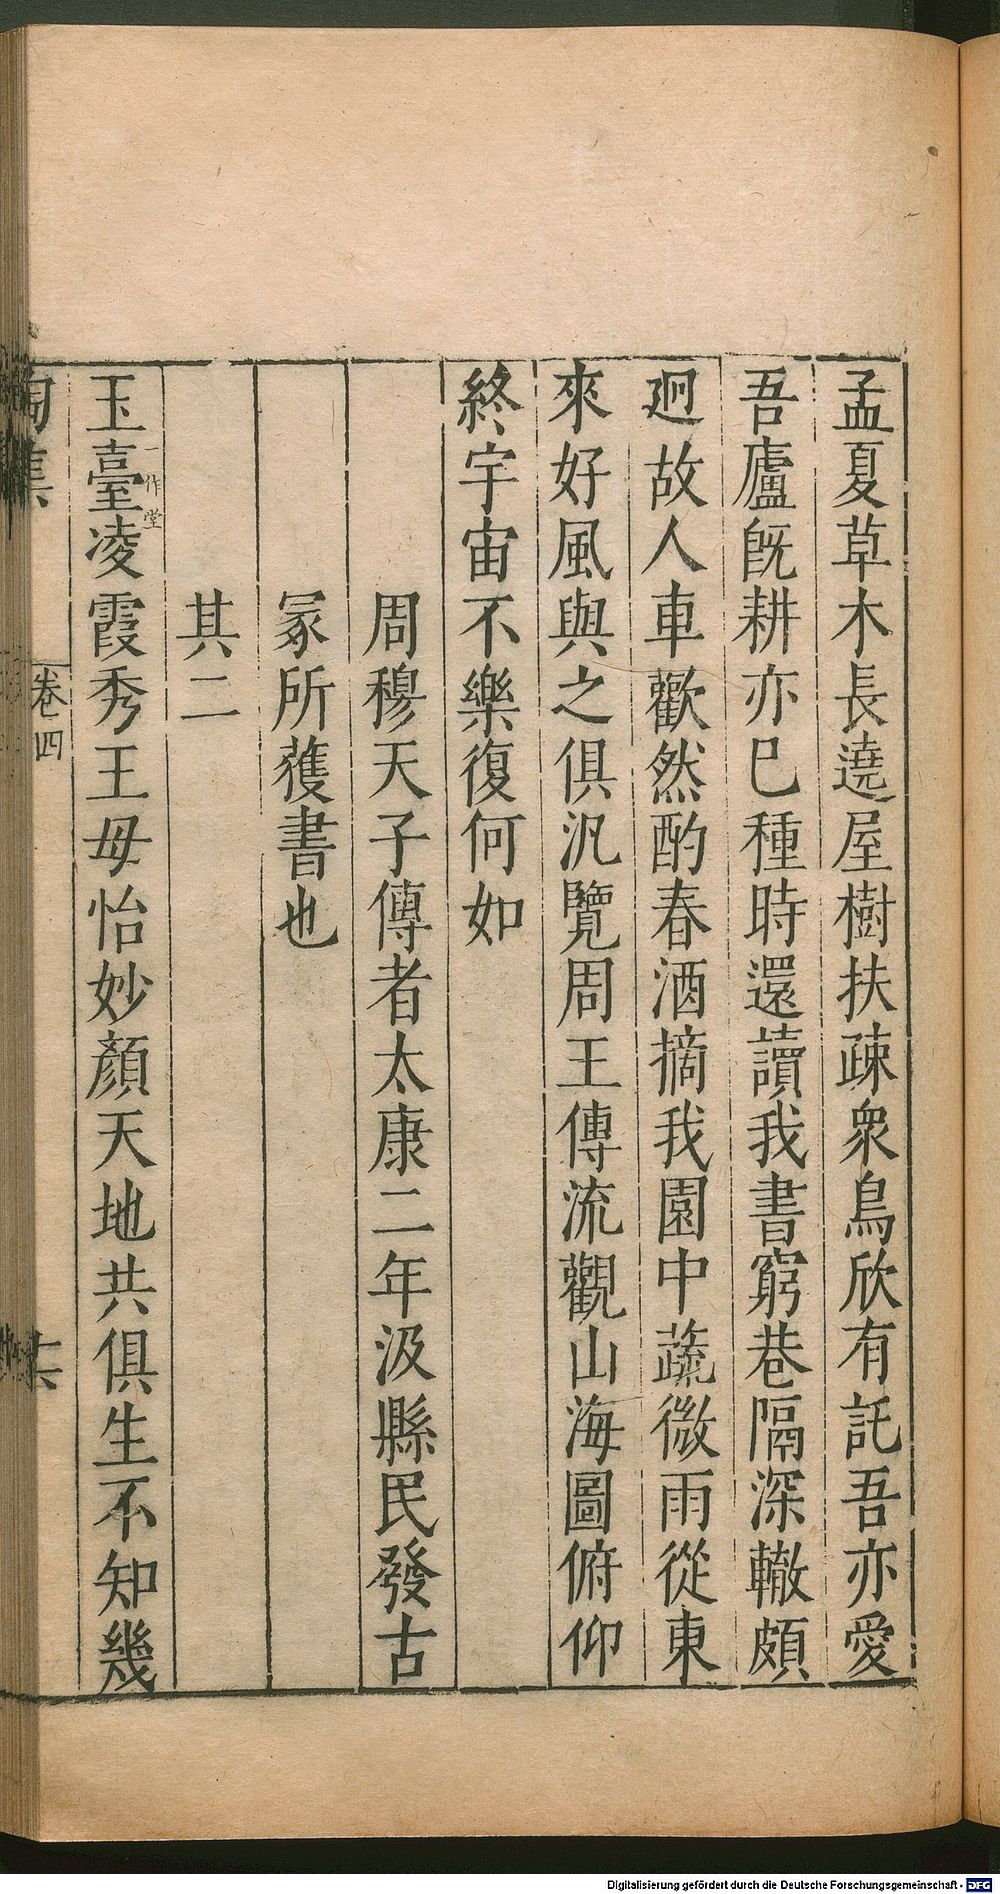 孟夏草木長遶屋樹扶疎衆鳥欣有託吾亦愛
吾廬旣耕亦巳種時還讀我書窮巷隔深轍頗
迴故人車歡然酌春酒摘我園中蔬微雨從東
來好風與之俱汎覽周王傳流觀山海圖俯仰
終宇宙不樂復何如
周穆天子傳者太康二年汲縣民發古
冢所獲書也
其二
玉臺一作堂凌霞秀王母怡妙顏天地共俱生不知幾
陶集
卷四
Digitalisierung gefördert durch die Deutsche Forschungsgemeinschaft - DFG